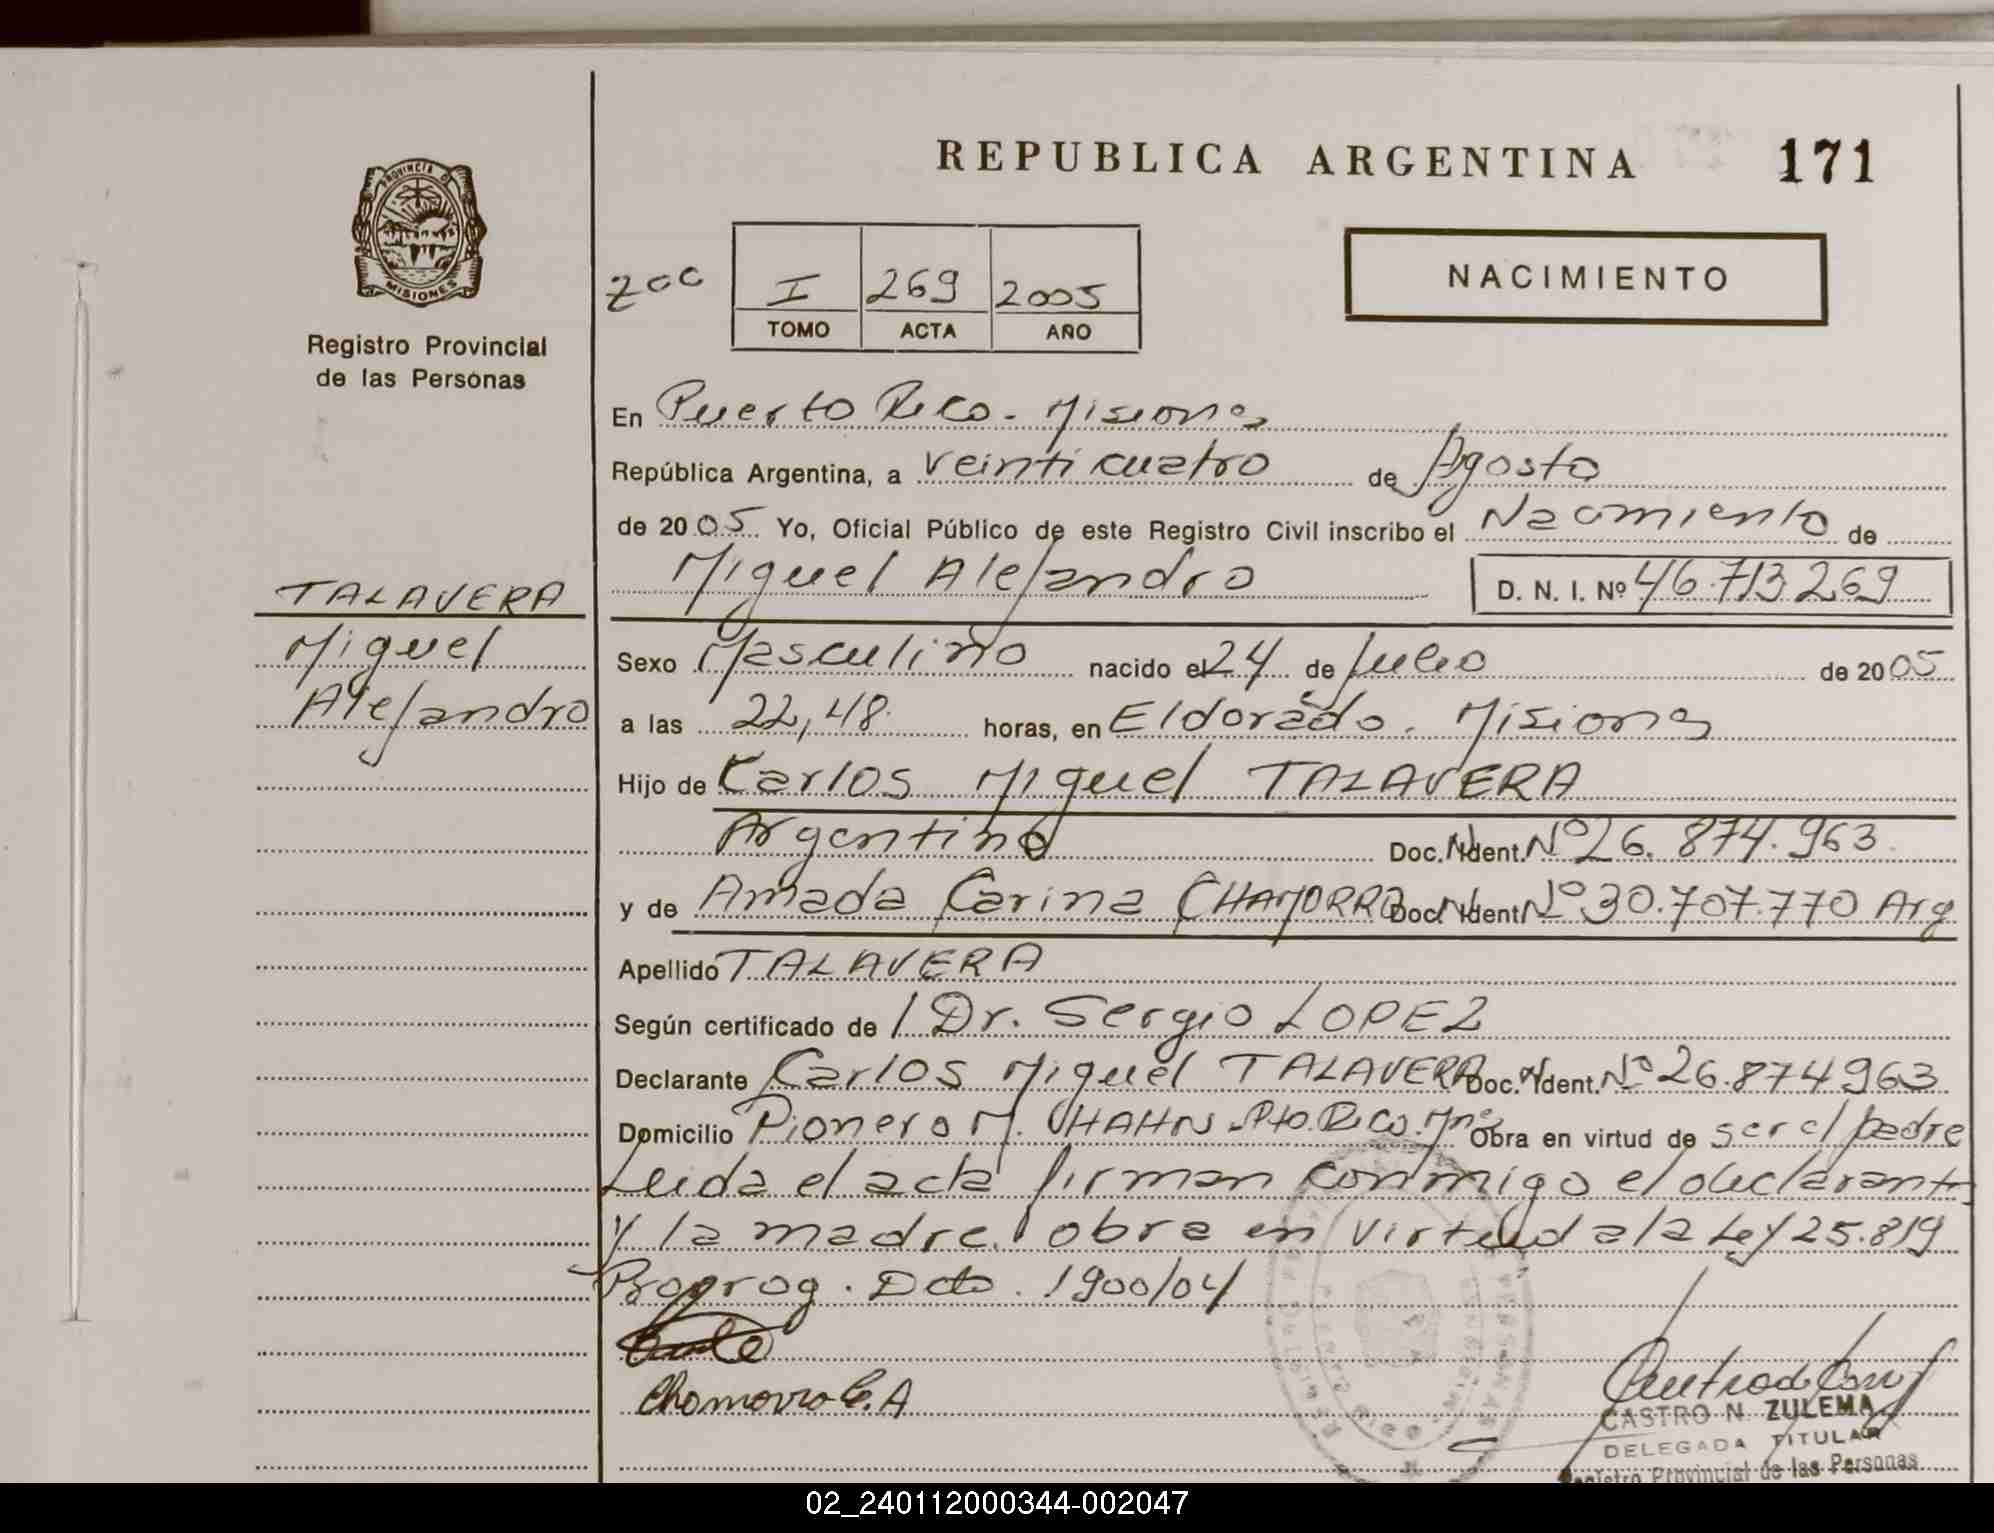 REPUBLICA ARGENTINA 171
PROVINCIA D
MISIONES
Registro Provincial
de las Personas
I 269 2005
TOMO ACTA AÑO
NACIMIENTO
En Puerto Rico - Misiones
República Argentina, a veinticuatro de Agosto
de 2005 Yo, Oficial Público de este Registro Civil inscribo el Nacimiento de
Miguel Alejandro D. N. I. Nº 46.713.269
TALAVERA
Miguel
Alejandro
Sexo Masculino nacido el 24 de Julio de 2005
a las 22,48 horas, en Eldorado. Misiones
Hijo de Carlos Miguel TALAVERA
Argentino Doc. N. Ident. Nº 26.874.963
y de Amada Carina CHAMORRO Doc. N. Ident Nº 30.707.770 Arg
Apellido TALAVERA
Según certificado de / Dr. Sergio LOPEZ
Declarante Carlos Miguel TALAVERA Doc. N. Ident. Nº 26.874963
Domicilio Pionero M. HAHN Pto. Rico. Mnes Obra en virtud de ser el padre
Leida el acta firman conmigo el declarante
y la madre obra en virtud a la Ley 25.819
Prorog. Dcto. 1900/04
Chamorro C. A
CASTRO N. ZULEMA
DELEGADA TITULAR
Registro Provincial de las Personas
02_240112000344-002047